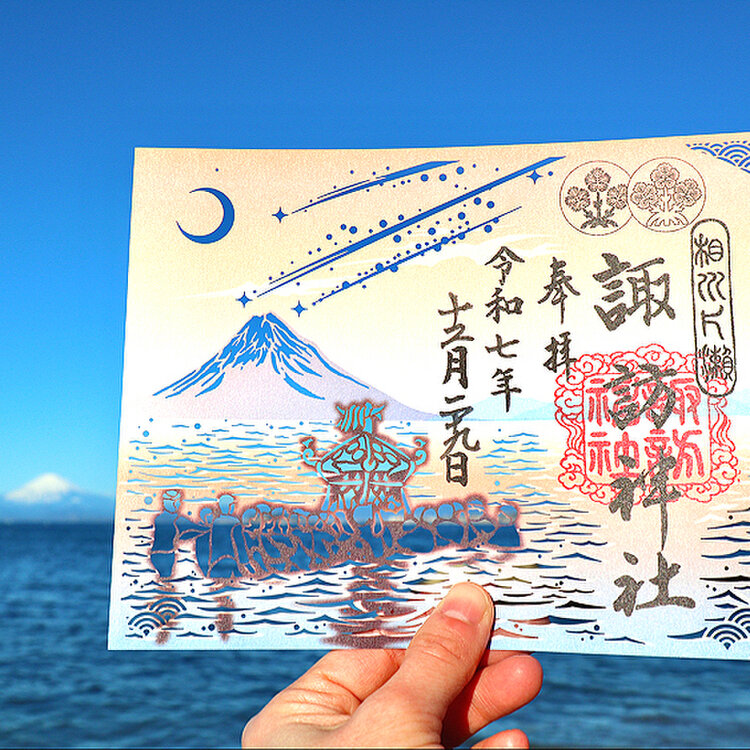 相州片瀬
諏訪神社
諏訪神社
奉拝
令和七年
十二月二九日